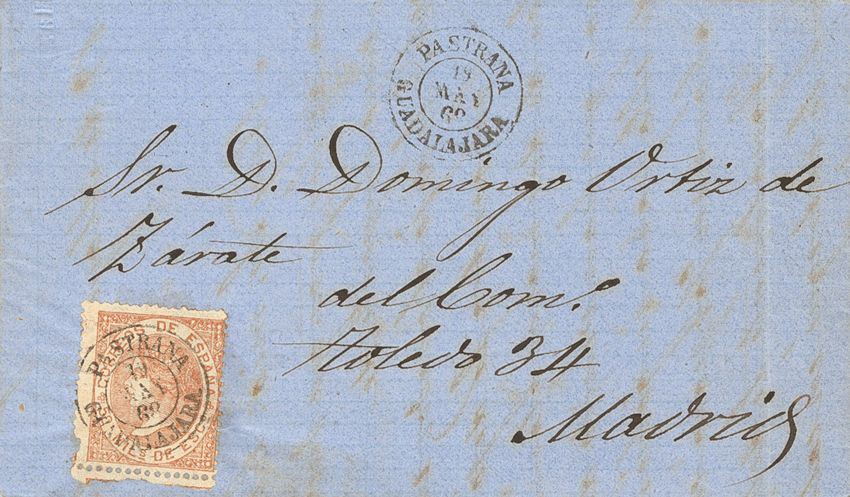 PASTRANA
19
MAY
69
GUADALAJARA
Sr. D. Domingo Ortiz de
Zárate
del Comº
Toledo 34
Madrid
DE ESPAÑA
PASTRANA
19
MAY
69
GUADALAJARA